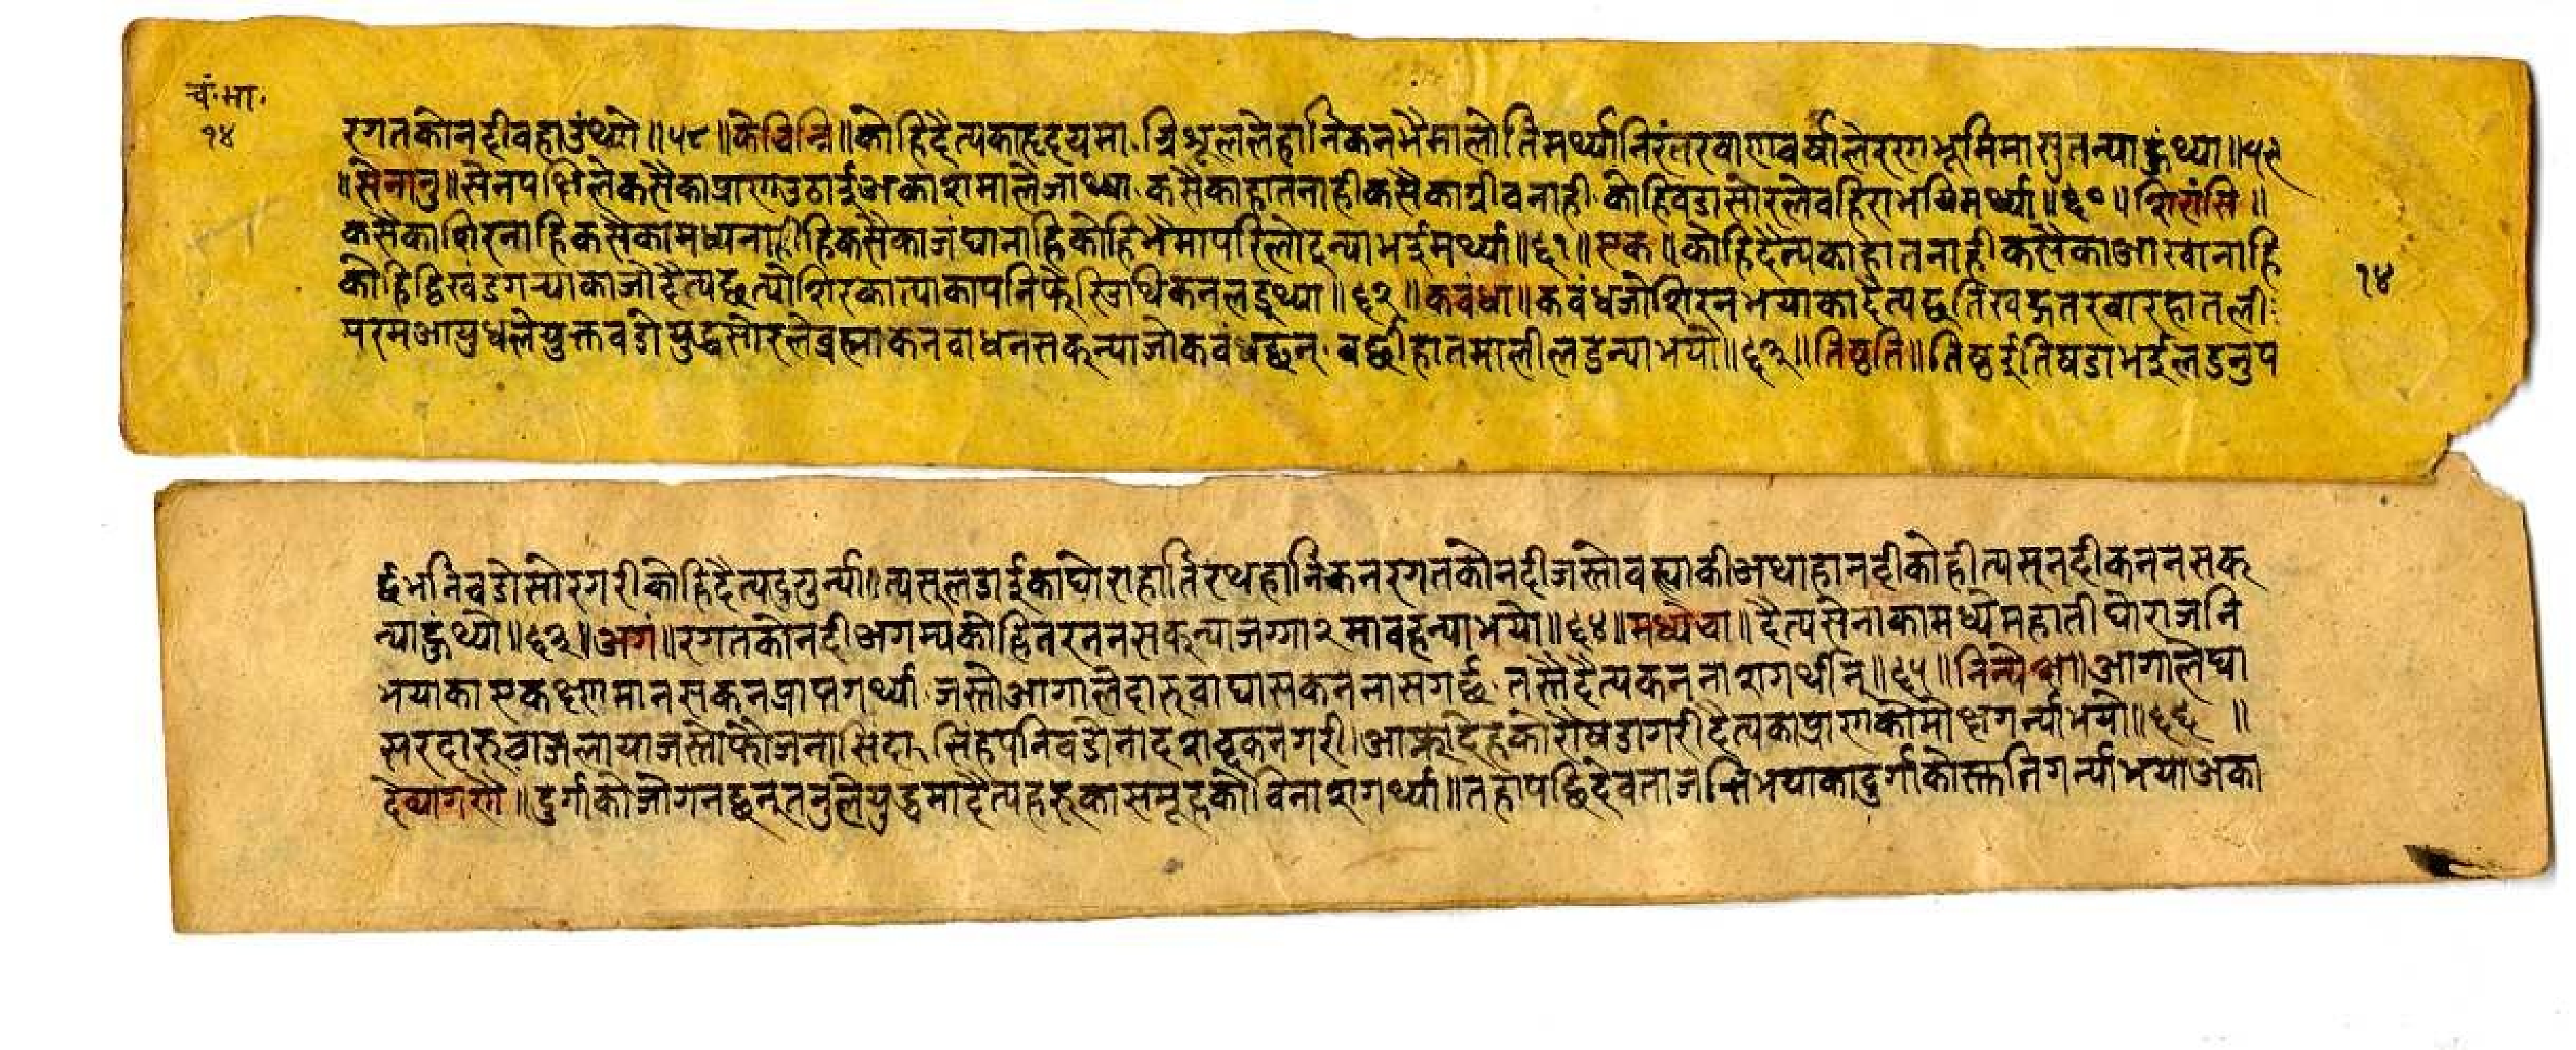 चं.भा.
१४
रगतकोनदीवहाउंथ्यो॥५८॥केचिन्नि॥कोहिदैत्यकाहृदयमा त्रिशूललेहानिकनभैमालोतिमर्थ्यानिरंतरवाणवर्षालेरणभूमिमासुतन्याहुंथ्या॥५९
॥सेनानु॥सेनपक्षिलेकसैकाप्राणउठाईअकाशमालैजाथ्या कसैकाहातनाहीकसैकाग्रीवनाही कोहिवडासोरलेवहिराभयिमर्थ्या॥६०॥शिरांसि॥
कसैकाशिरनाहिकसैकामध्यनाहीहिकसैकाजंघानाहिकोहिभैमापरिलोट्न्याभईमर्थ्या॥६१॥एक॥कोहिदैत्यकाहातनाहीकसैकाआखानाहि
कोहिद्विखंडगर्‍याकाजोदैत्यछत्योशिरकाट्याकापनिफेरिउथिकनलड्थ्या॥६२॥कवंधा॥कवंधजोशिरनभयाकादैत्यछतिखड्गतरवारहातली
१४
परमआयुधलेयुक्तवडोयुद्धसोरलेव्रह्माकेनवाधनसक्न्याजोकवंधछन् वर्छीहातमालीलडन्याभयो॥६३॥तिष्ठति॥तिष्ठईतिषडाभईलडनुप
र्छभनिवडोसोरगरीकोहिदैत्यदुगुर्न्या।त्यसलडाईकाघोराहातिरथहानिकनरगतकोनदीजस्तोवह्याकीअथाहानदीकोहीत्यसनदीकननसक्
न्याहुंथ्यो॥६३॥अगं॥रगतकोनदीअगम्यकोहितरननसक्न्याजग्गा२मावहन्याभयो॥६४॥मध्येचा॥दैत्यसेनाकामध्येमहातीघोराजनि
भयाकाएकक्षणमानसकनप्राप्तगर्थ्यी जस्तोआगालेदारुवाघासकननासगर्छ तस्तैदैत्यकननाशगर्थीन्॥६५॥निन्येक्षा॥आगालेघा
सरदारुवाजलायाजस्तोफौजनासिंदा सिंहपनिवडोनादशव्दकनगरी।आफ्नुदेहकारोषडागरीदैत्यकाप्राणकोमोक्षगर्न्याभयो॥६६॥
देव्यागणै॥दुर्गाकोजोगनछन्तनुलेयुद्धमादैत्यहरुकासमूहकोविनाशगर्थ्या॥तहापछिदेवताजन्तिभयाकादुर्गाकोस्तुतिगर्न्याभयाअका